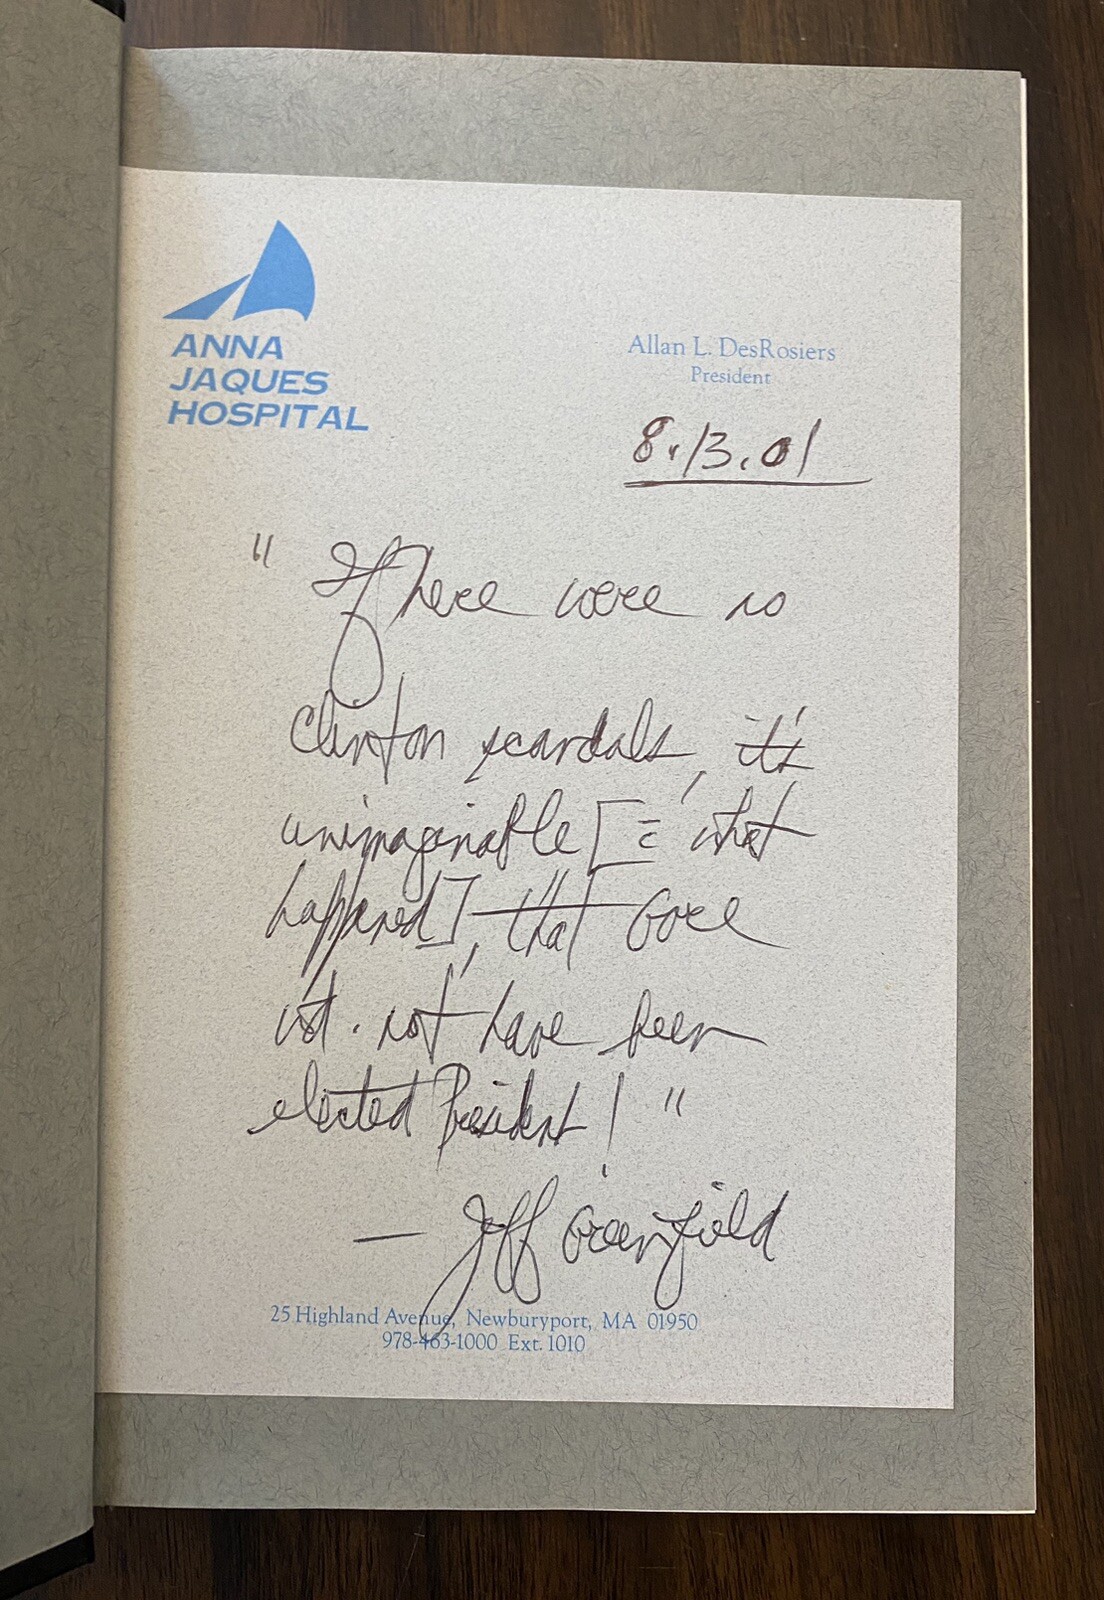 ANNA
JAQUES
HOSPITAL
Allan L. DesRosiers
President
8.13.01
" If there were no
Clinton scandals, it's
unimaginable [ = what
happened], that Gore
not have been
elected President! "
— Jeff Greenfield
25 Highland Avenue, Newburyport, MA 01950
978-463-1000 Ext. 1010